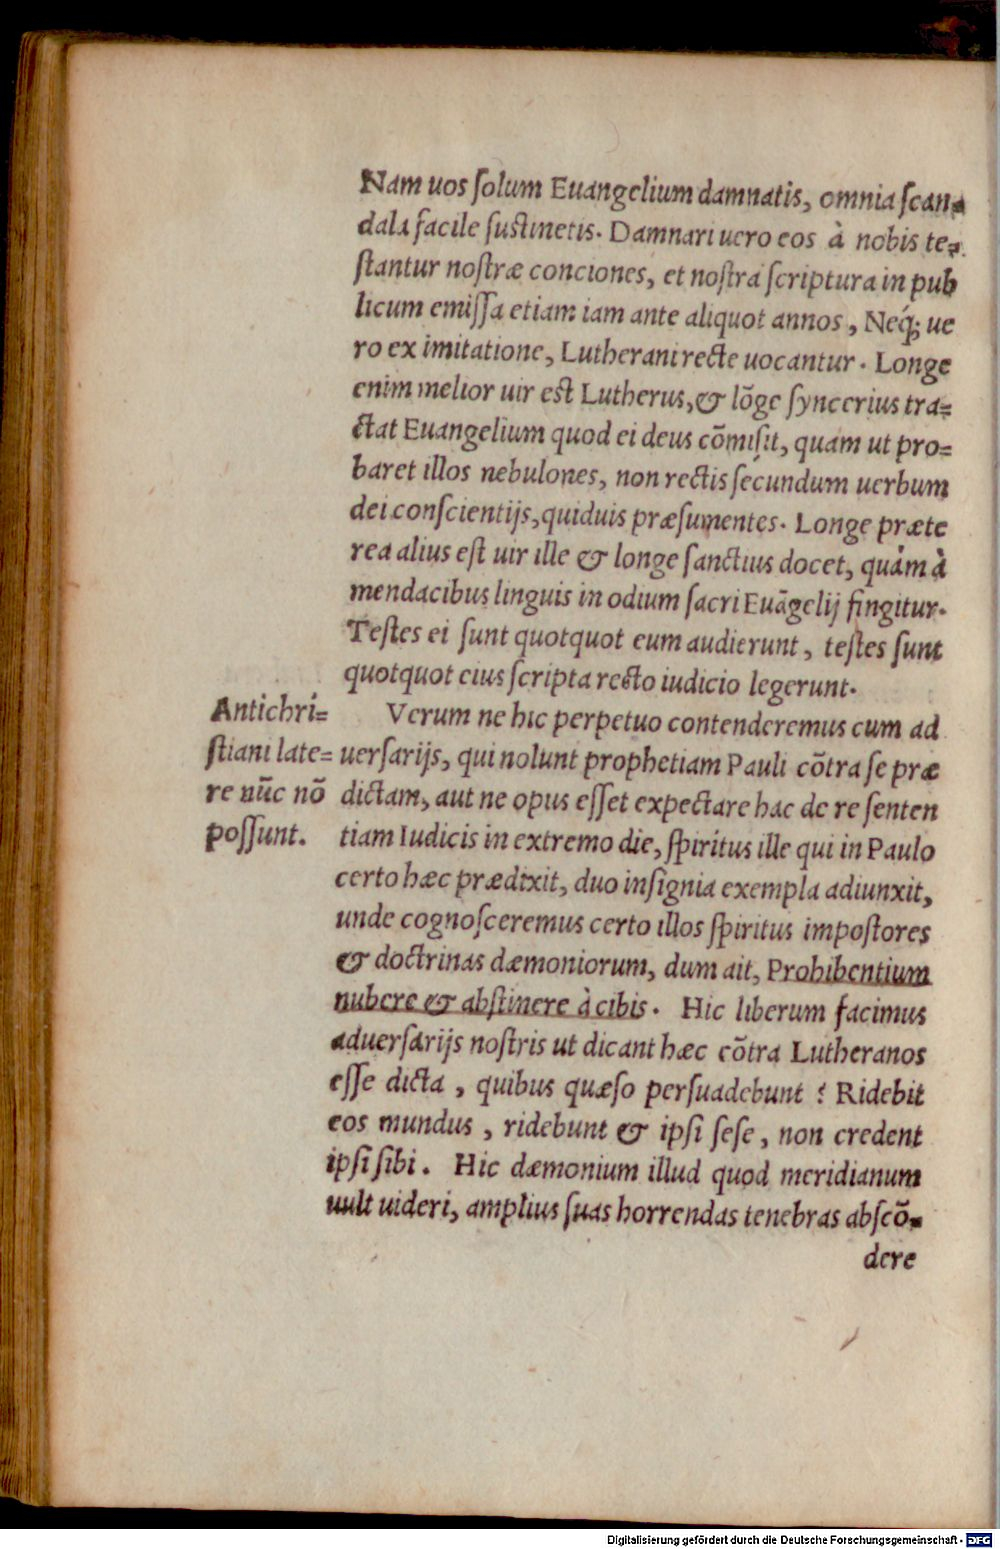 Nam uos ſolum Euangelium damnatis, omnia ſcan=
dala facile ſuſtinetis. Damnari uero eos à nobis te=
ſtantur noſtræ conciones, et noſtra ſcriptura in pub
licum emiſſa etiam iam ante aliquot annos, Neq́; ue
ro ex imitatione, Lutherani recte uocantur. Longe
enim melior uir eſt Lutherus, & lõge ſyncerius tra=
ctat Euangelium quod ei deus cõmiſit, quam ut pro=
baret illos nebulones, non rectis ſecundum uerbum
dei conſcientijs, quiduis præſumentes. Longe præte
rea alius eſt uir ille & longe ſanctius docet, quàm à
mendacibus linguis in odium ſacri Euãgelij fingitur.
Teſtes ei ſunt quotquot eum audierunt, teſtes ſunt
quotquot eius ſcripta recto iudicio legerunt.
Antichri=
ſtiani late=
re nũc nõ
poſſunt.
Verum ne hic perpetuo contenderemus cum ad
uerſarijs, qui nolunt prophetiam Pauli cõtra ſe præ
dictam, aut ne opus eſſet expectare hac de re ſenten
tiam Iudicis in extremo die, ſpiritus ille qui in Paulo
certo hæc prædixit, duo inſignia exempla adiunxit,
unde cognoſceremus certo illos ſpiritus impoſtores
& doctrinas dæmoniorum, dum ait, Prohibentium
nubere & abſtinere à cibis. Hic liberum facimus
aduerſarijs noſtris ut dicant hæc cõtra Lutheranos
eſſe dicta, quibus quæſo perſuadebunt? Ridebit
eos mundus, ridebunt & ipſi ſeſe, non credent
ipſi ſibi. Hic dæmonium illud quod meridianum
uult uideri, amplius ſuas horrendas tenebras abſcõ=
dere
Digitalisierung gefördert durch die Deutsche Forschungsgemeinschaft - DFG